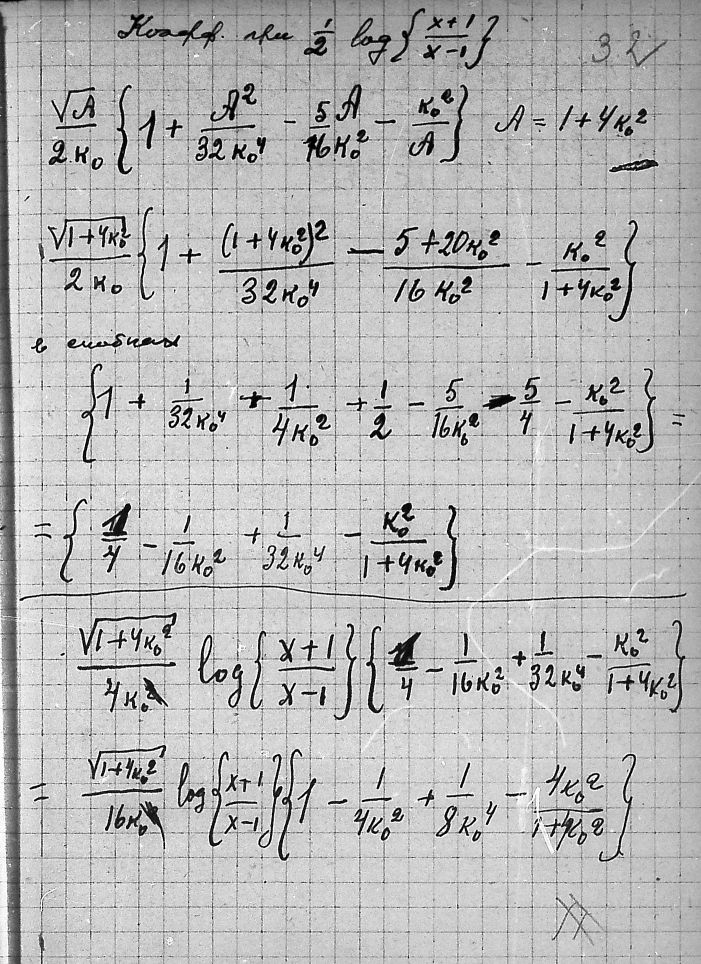 Коэфф. при 1/2 log{(x+1)/(x-1)} 32
√A/(2κ₀) {1 + A²/(32κ₀⁴) - 5A/(16κ₀²) - κ₀²/A} A = 1+4κ₀²
√(1+4κ₀²)/(2κ₀) {1 + (1+4κ₀²)²/(32κ₀⁴) - (5+20κ₀²)/(16κ₀²) - κ₀²/(1+4κ₀²)}
в скобках
{1 + 1/(32κ₀⁴) + 1/(4κ₀²) + 1/2 - 5/(16κ₀²) - 5/4 - κ₀²/(1+4κ₀²)} =
= {1/4 - 1/(16κ₀²) + 1/(32κ₀⁴) - κ₀²/(1+4κ₀²)}
√(1+4κ₀²)/(4κ₀) log{(x+1)/(x-1)} {1/4 - 1/(16κ₀²) + 1/(32κ₀⁴) - κ₀²/(1+4κ₀²)}
= √(1+4κ₀²)/(16κ₀) log{(x+1)/(x-1)} {1 - 1/(4κ₀²) + 1/(8κ₀⁴) - 4κ₀²/(1+4κ₀²)}